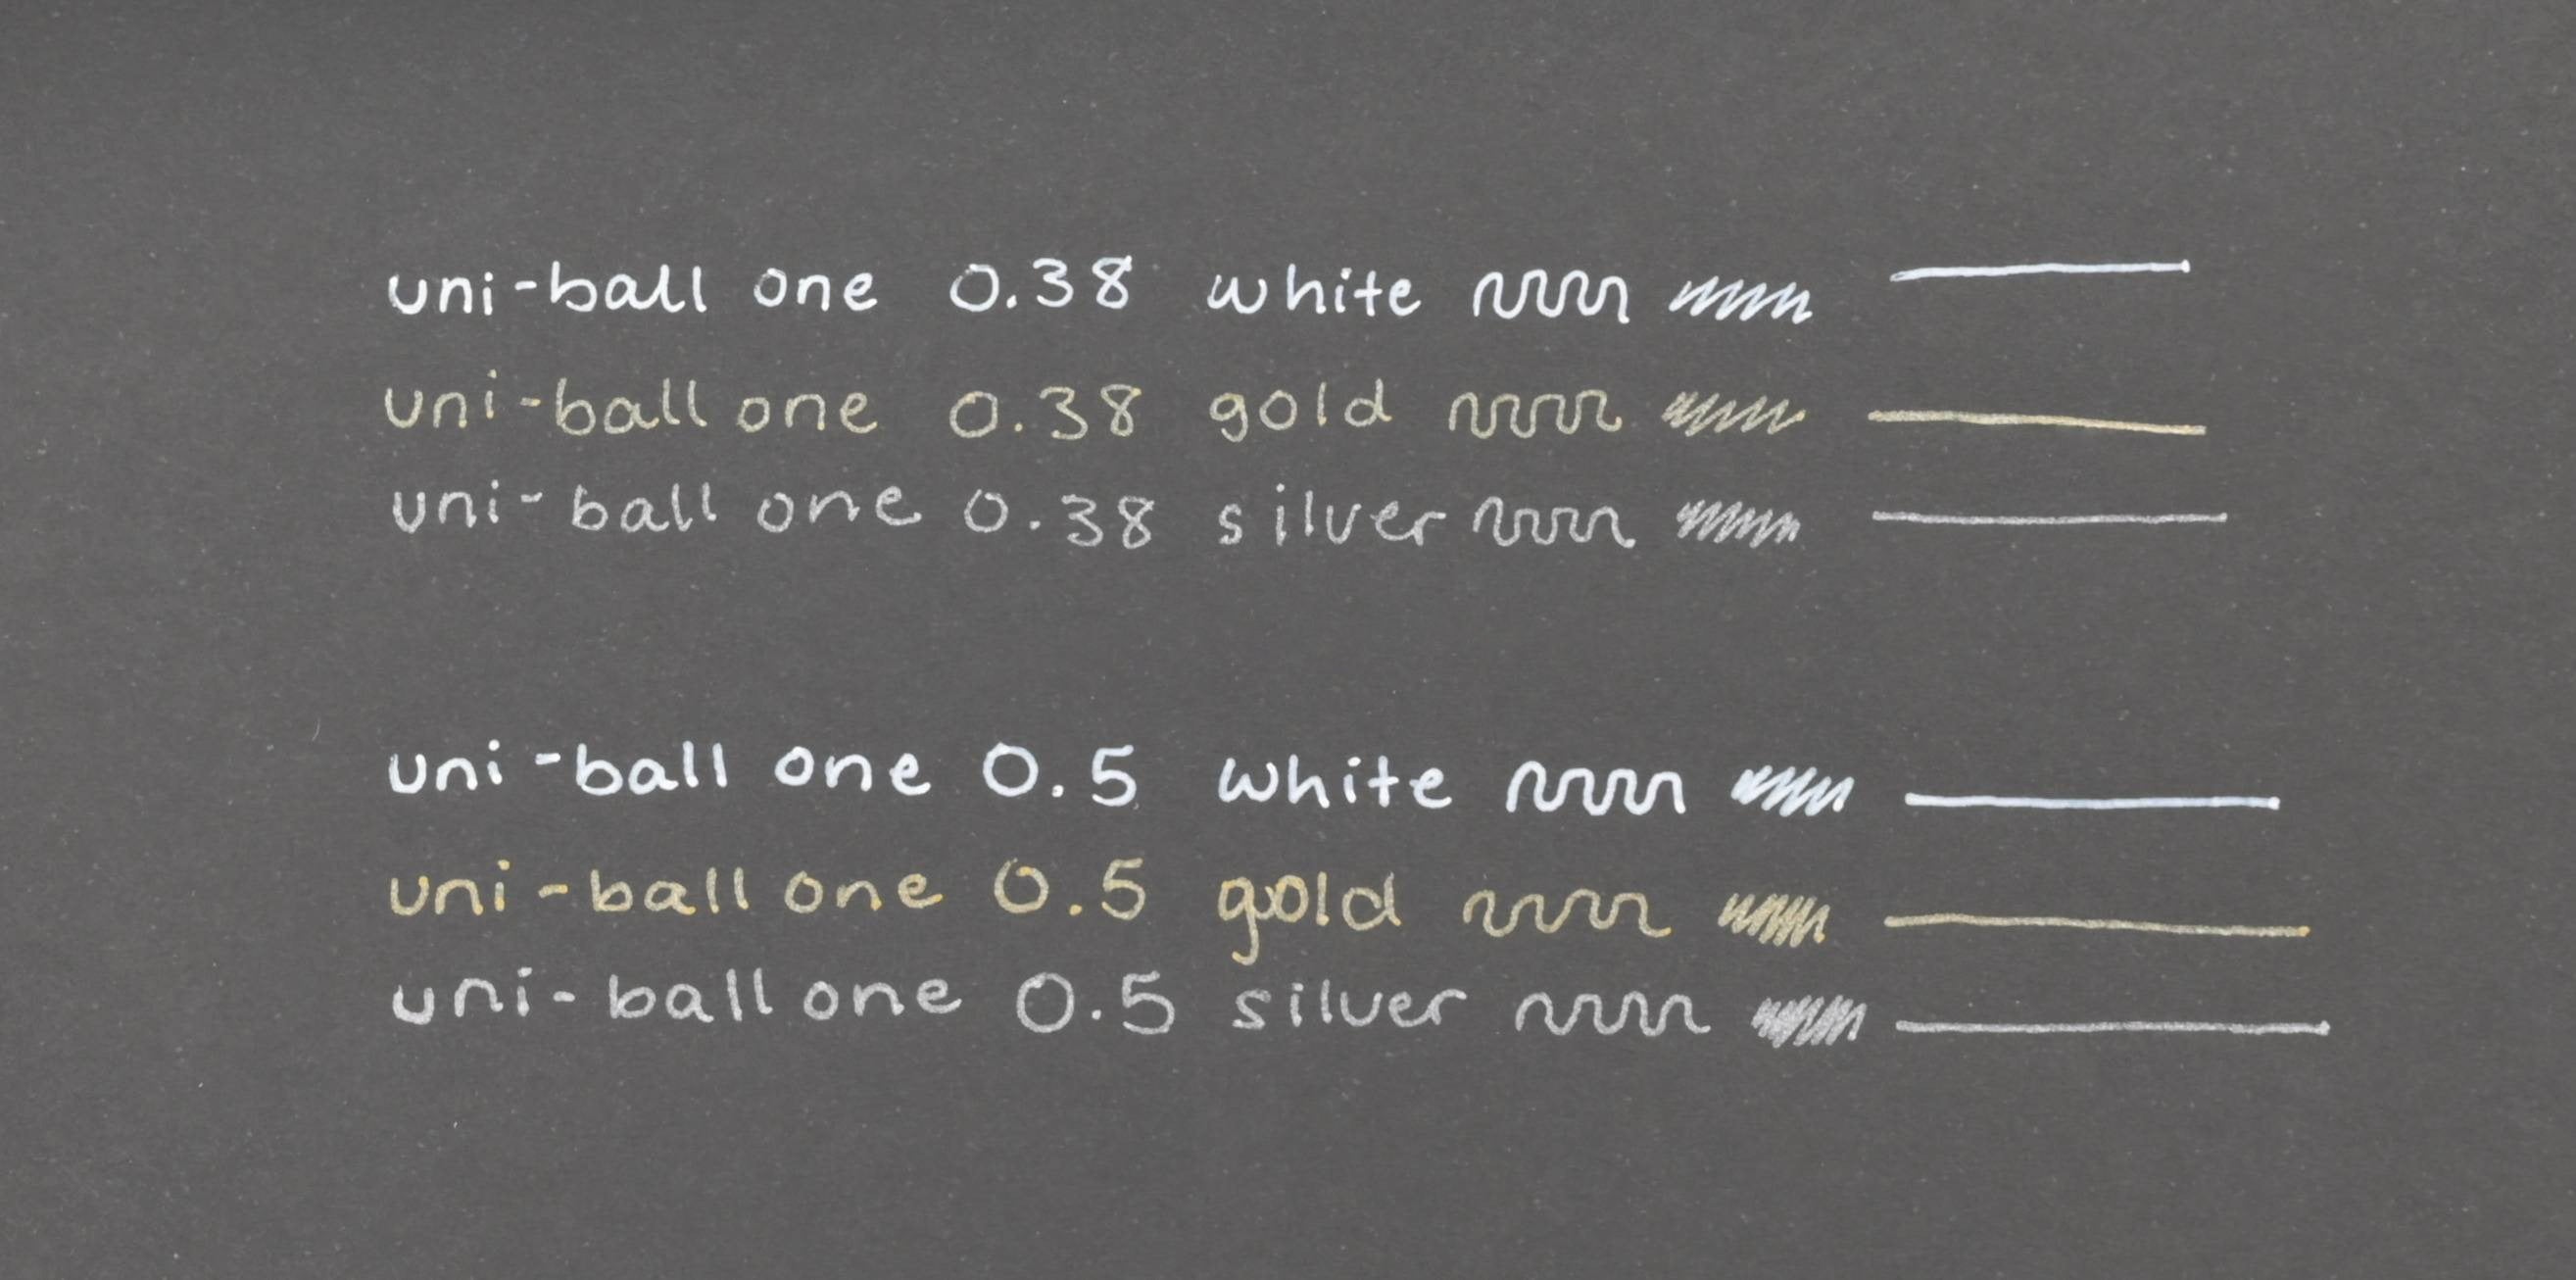 uni-ball one 0.38 white
uni-ball one 0.38 gold
uni-ball one 0.38 silver
uni-ball one 0.5 white
uni-ball one 0.5 gold
uni-ball one 0.5 silver